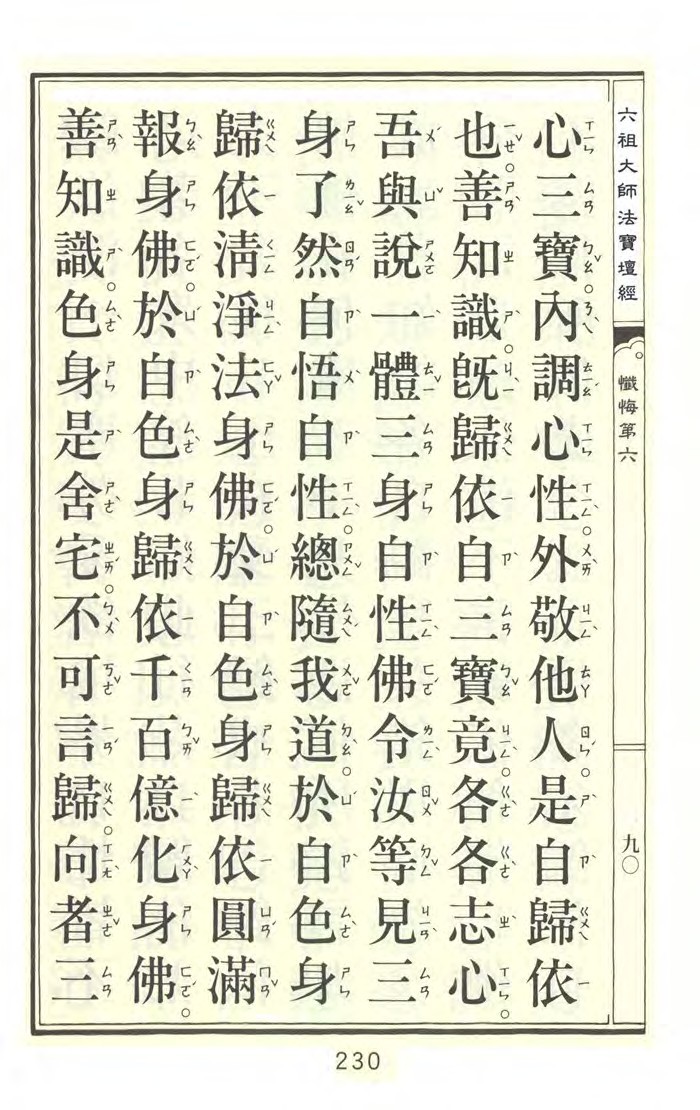 六祖大師法寶壇經
懺悔第六
九〇
心三寶內調心性。外敬他人。是自歸依
也。善知識。旣歸依自三寶竟。各各志心。
吾與說一體三身自性佛令汝等見三
身了然自悟自性。總隨我道。於自色身
歸依淸淨法身佛。於自色身歸依圓滿
報身佛。於自色身歸依千百億化身佛。
善知識。色身是舍宅。不可言歸。向者三
230